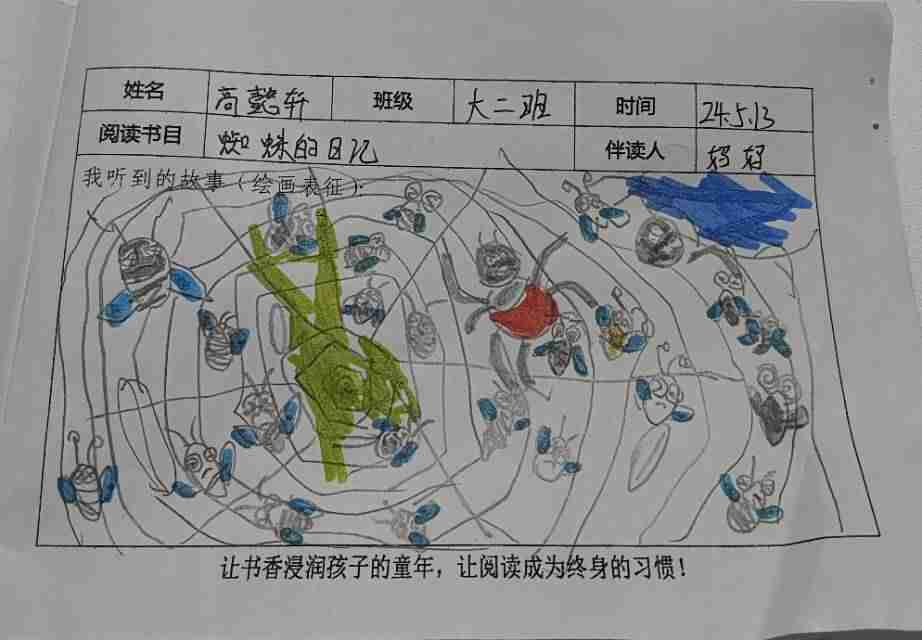 姓名 高懿轩 班级 大二班 时间 24.5.13
阅读书目 蜘蛛的日记 伴读人 妈妈
我听到的故事（绘画表征）：
让书香浸润孩子的童年，让阅读成为终身的习惯！